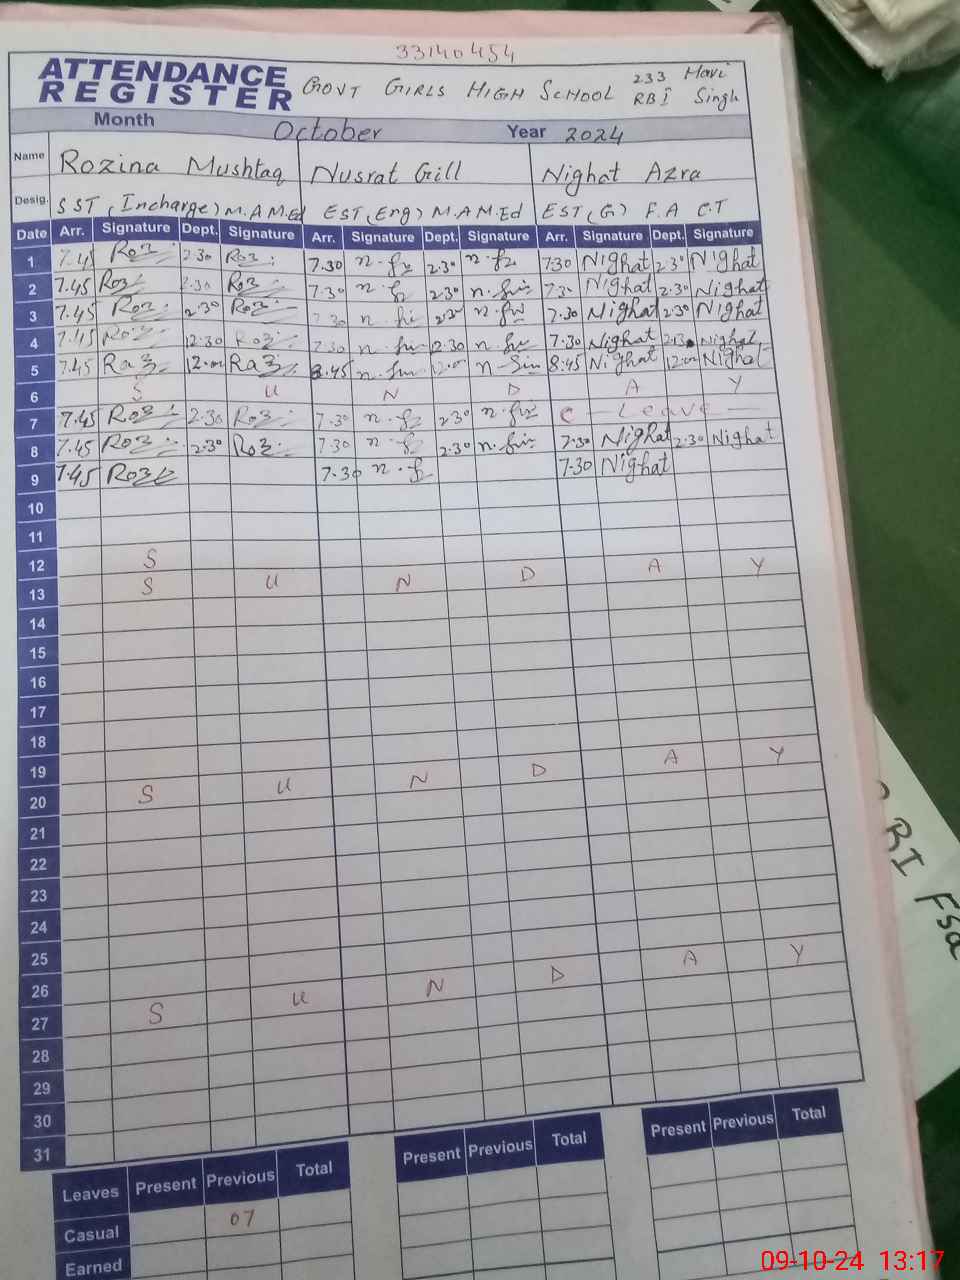 33140454
ATTENDANCE REGISTER
GOVT GIRLS HIGH SCHOOL 233 RBI Hari Singh
Month October Year 2024
Name Rozina Mushtaq Nusrat Gill Nighat Azra
Desig. SST (Incharge) M.A M.Ed EST (Eng) M.A M.Ed EST (G) F.A C.T
Date Arr. Signature Dept. Signature Arr. Signature Dept. Signature Arr. Signature Dept. Signature
1 7.45 Roz 2.30 Roz 7.30 2.30 7.30 Nighat 2.30 Nighat
2 7.45 Roz 2.30 Roz 7.30 2.30 7.30 Nighat 2.30 Nighat
3 7.45 Roz 2.30 Roz 7.30 2.30 7.30 Nighat 2.30 Nighat
4 7.45 Roz 12.30 Roz 7.30 2.30 7.30 Nighat Nighat
5 7.45 Roz 12.00 Roz 8.45 12.00 8:45 Nighat 12.00 Nighat
6 S U N D A Y
7 7.45 Roz 2.30 Roz 7.30 2.30 C - Leave
8 7.45 Roz 2.30 Roz 7.30 2.30 7.30 Nighat 2.30 Nighat
9 7.45 Roz 7.30 7.30 Nighat
10
11
12 S
13 S U N D A Y
14
15
16
17
18
19
20 S U N D A Y
21
22
23
24
25
26
27 S U N D A Y
28
29
30
31
Leaves Present Previous Total Present Previous Total Present Previous Total
Casual 07
Earned
RBI Fsd
09-10-24 13:17